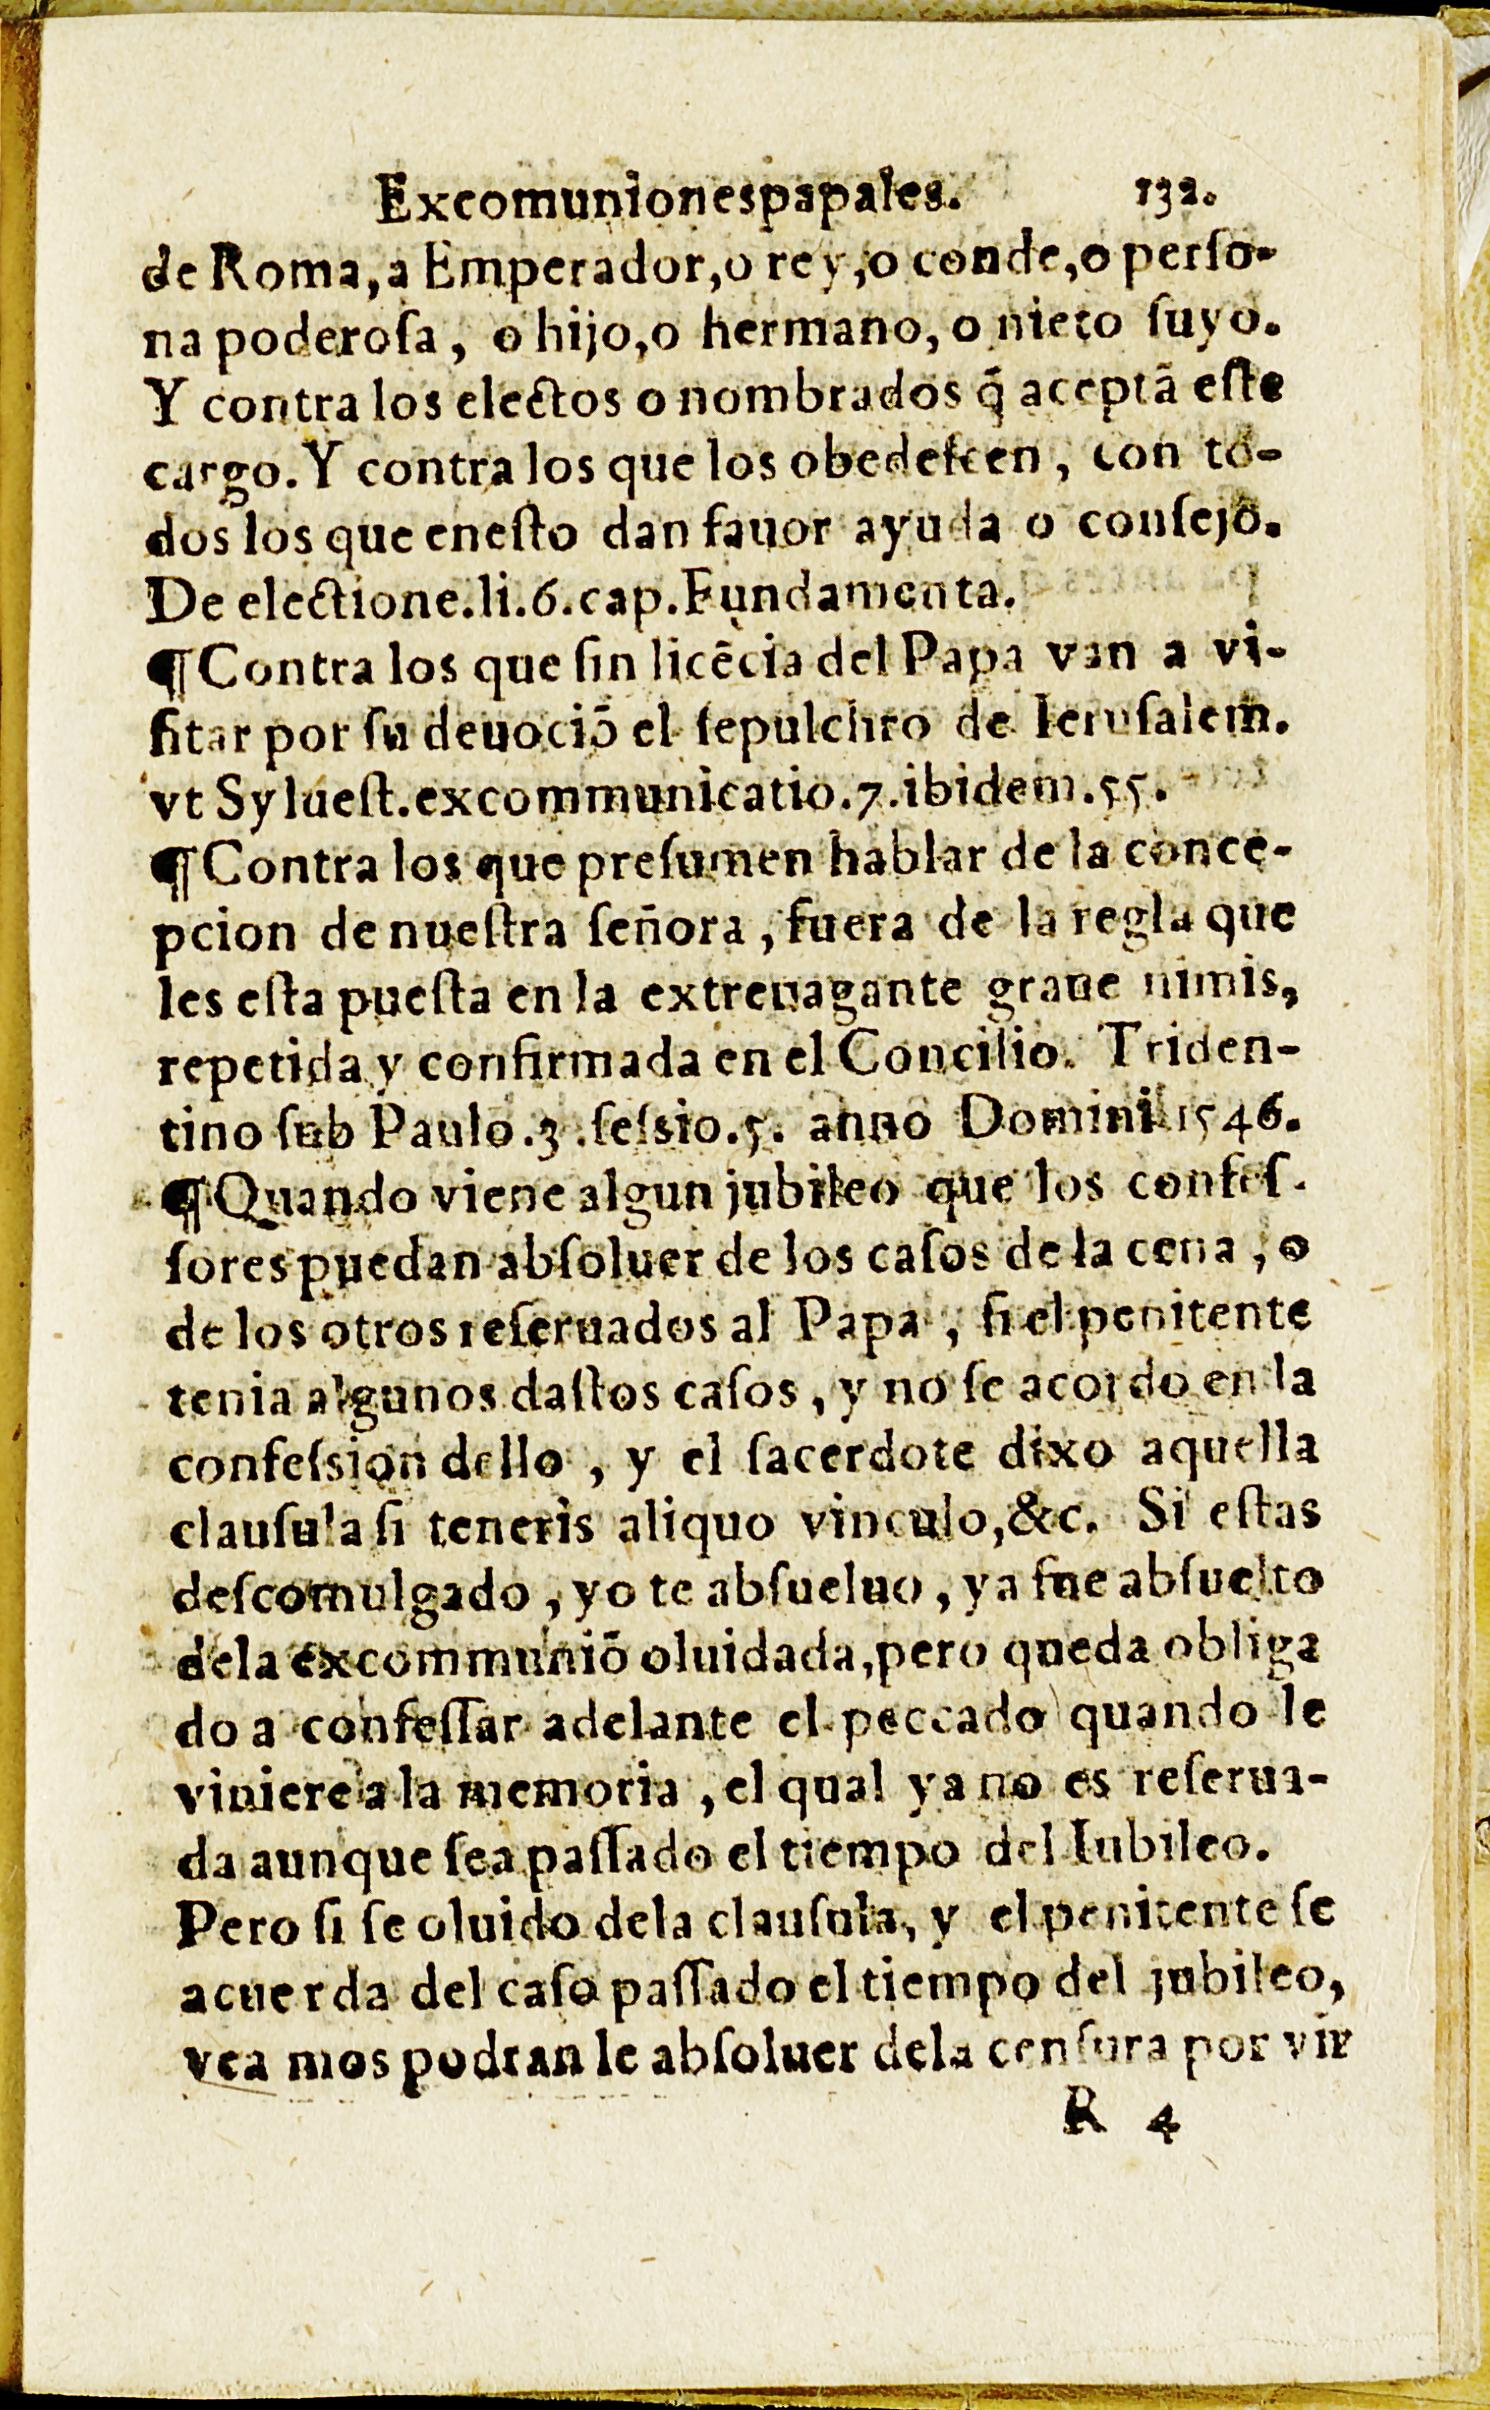 Excomunionespapales. 132.
de Roma, a Emperador, o rey, o conde, o perſo-
na poderoſa, o hijo, o hermano, o nieto ſuyo.
Y contra los electos o nombrados q̃ aceptã eſte
cargo. Y contra los que los obedeſcen, con to-
dos los que eneſto dan fauor ayuda o conſejo.
De electione.li.6.cap.Fundamenta.
¶ Contra los que ſin licẽcia del Papa van a vi-
ſitar por ſu deuociõ el ſepulchro de Ieruſalem.
vt Sylueſt.excommunicatio.7.ibidem.55.
¶ Contra los que preſumen hablar de la conce-
pcion de nueſtra ſeñora, fuera de la regla que
les eſta pueſta en la extreuagante graue nimis,
repetida y confirmada en el Concilio. Triden-
tino ſub Paulo.3.ſeſsio.5. anno Domini 1546.
¶ Quando viene algun jubileo que los confeſ-
ſores puedan abſoluer de los caſos de la cena, o
de los otros reſeruados al Papa, ſi el penitente
tenia algunos daſtos caſos, y no ſe acordo en la
confeſsion dello, y el ſacerdote dixo aquella
clauſula ſi teneris aliquo vinculo, &c. Si eſtas
deſcomulgado, yo te abſueluo, ya fue abſuelto
dela excommuniõ oluidada, pero queda obliga
do a confeſſar adelante el peccado quando le
viniere a la memoria, el qual ya no es reſerua-
da aunque ſea paſſado el tiempo del Iubileo.
Pero ſi ſe oluido dela clauſula, y el penitente ſe
acuerda del caſo paſſado el tiempo del jubileo,
vea mos podran le abſoluer dela cenſura por vir
R 4